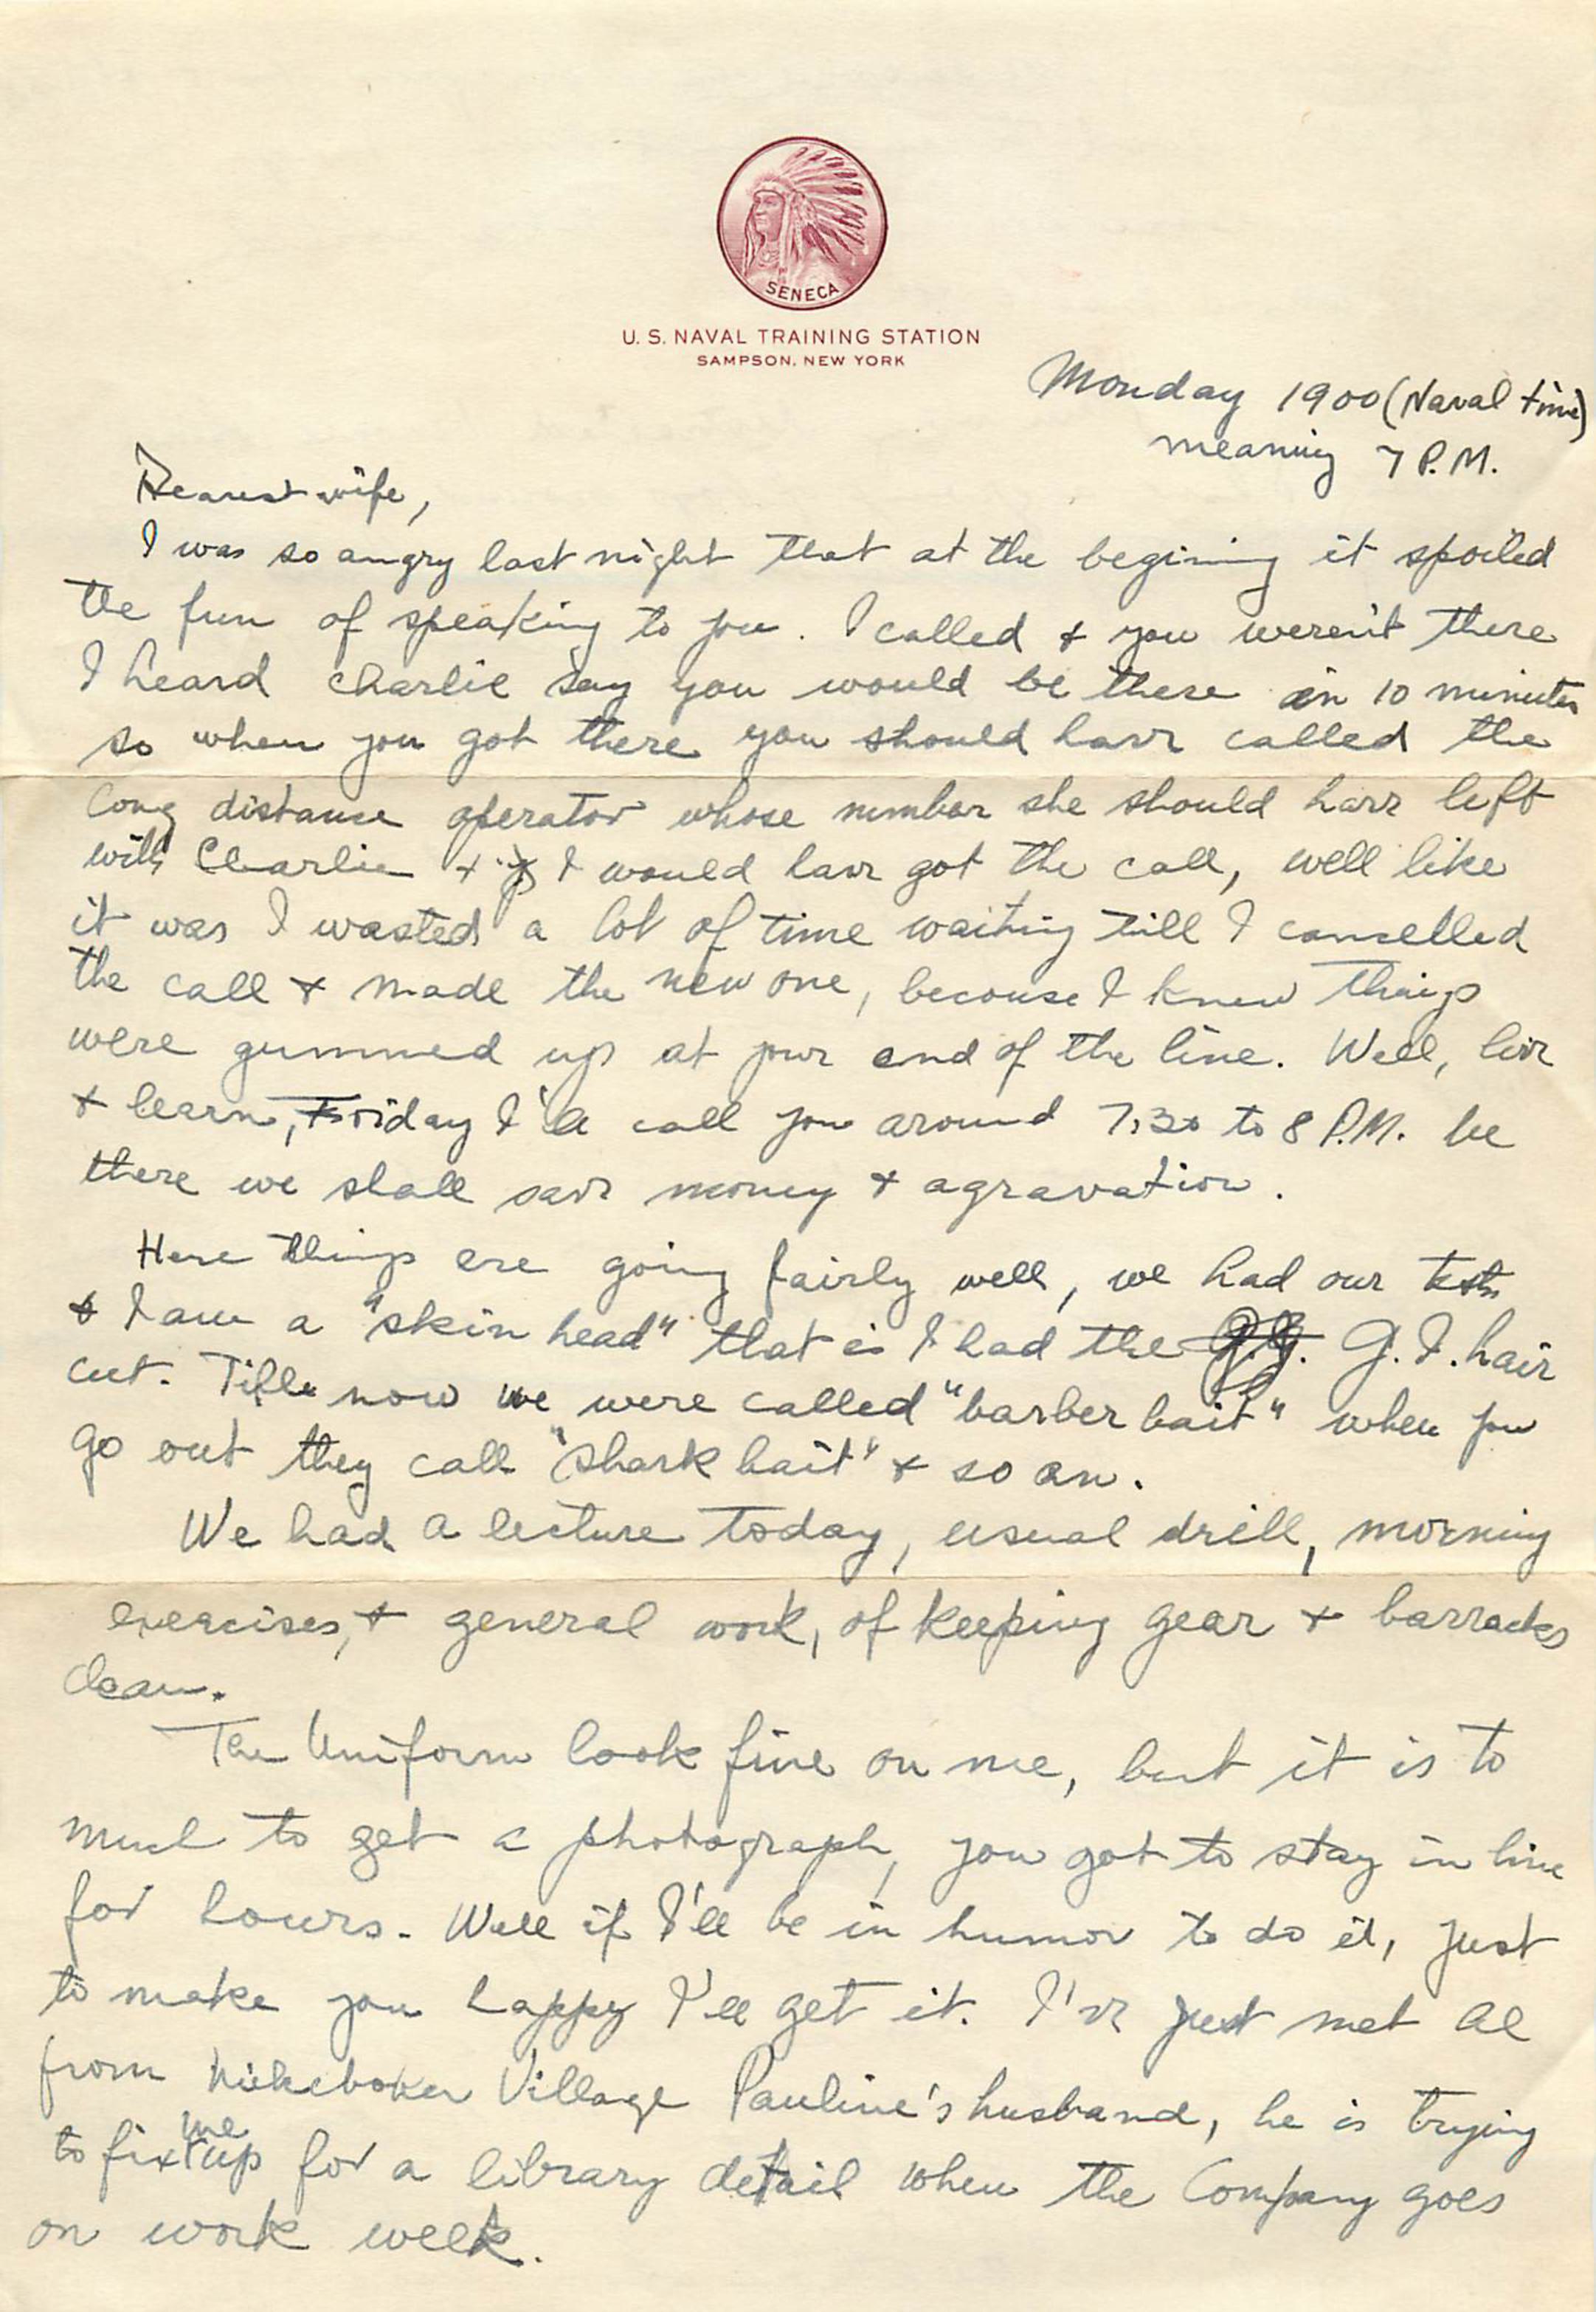 SENECA
U. S. NAVAL TRAINING STATION
SAMPSON, NEW YORK
Monday 1900 (Naval time)
meaning 7 P.M.
Dearest wife,
I was so angry last night that at the begining it spoiled
the fun of speaking to you. I called & you weren't there
I heard Charlie say you would be there in 10 minutes
so when you got there you should have called the
long distance operator whose number she should have left
with Charlie & I would have got the call, well like
it was I wasted a lot of time waiting till I cancelled
the call & made the new one, becouse I knew things
were gummed up at your end of the line. Well, live
& learn, Friday I'll call you around 7,30 to 8 P.M. be
there we shall save money & agravation.
Here things are going fairly well, we had our tests
& I am a "skin head" that is I had the G.I. hair
cut. Till now we were called "barber bait" when you
go out they call "shark bait" & so on.
We had a lecture today, usual drill, morning
exercises, & general work, of keeping gear & barracks
clean.
The Uniform look fine on me, but it is to
much to get a photograph, you got to stay in line
for hours. Well if I'll be in humor to do it, just
to make you happy I'll get it. I've just met Al
from Village Pauline's husband, he is trying
to fix me up for a library detail when the Company goes
on work week.